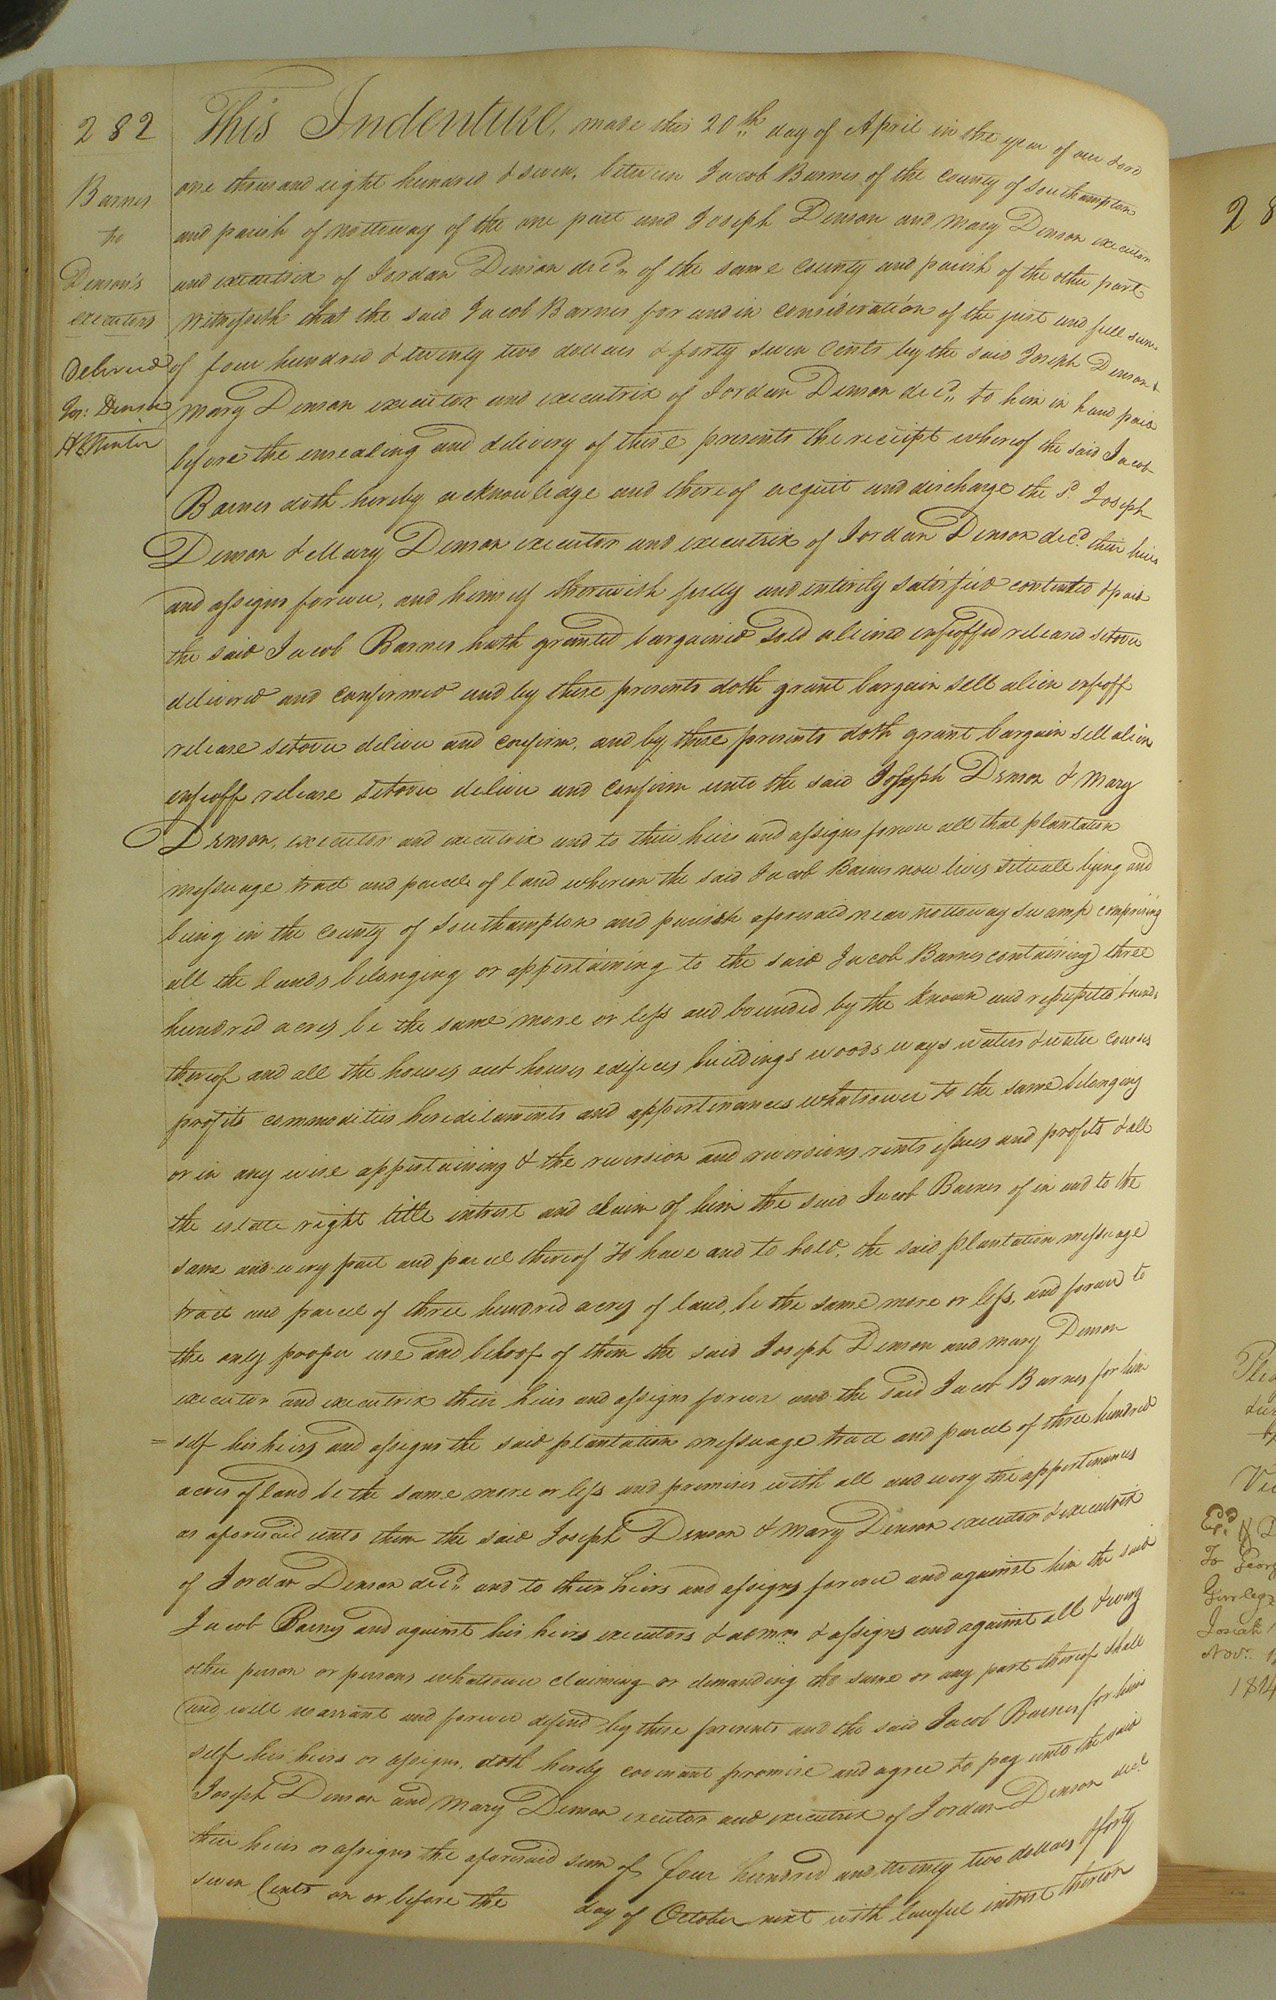 282
Barnes
to
Denson's
executors
Delivered
Jos: Denson
This Indenture, made this 20th day of April in the year of our Lord
one thousand eight hundred & seven, between Jacob Barnes of the County of Southampton
and parish of nottoway of the one part and Joseph Denson and Mary Denson executor
and executrix of Jordan Denson decd. of the same County and parish of the other part
Witnesseth that the said Jacob Barnes for and in consideration of the just and full sum
of four hundred & twenty two dollars & forty seven Cents by the said Joseph Denson &
Mary Denson executor and executrix of Jordan Denson decd. to him in hand paid
before the ensealing and delivery of these presents the receipt whereof the said Jacob
Barnes doth hereby acknowledge and thereof acquit and discharge the sd. Joseph
Denson & Mary Denson executor and executrix of Jordan Denson decd. their heirs
and assigns forever, and himself therewith fully and entirely satisfied contented & paid
the said Jacob Barnes hath granted bargained sold aliened enfeoffed released setover
delivered and confirmed and by these presents doth grant bargain sell alien enfeoff
release setover deliver and confirm, and by these presents doth grant bargain sell alien
enfeoff release setover deliver and confirm unto the said Joseph Denson & Mary
Denson, executor and executrix and to their heirs and assigns forever all that plantation
messuage tract and parcel of land whereon the said Jacob Barnes now lives situate lying and
being in the County of Southampton and parish aforesaid near nottoway swamp comprising
all the lands belonging or appertaining to the said Jacob Barnes containing three
hundred acres be the same more or less and bounded by the known and reputed bounds
thereof and all the houses out houses edifices buildings woods ways waters & water courses
profits commodities heredilaments and appertinances whatsoever to the same belonging
or in any wise appertaining & the reversion and reversions rents issues and profits & all
the estate right title intrest and claim of him the said Jacob Barnes of in and to the
same and every part and parcel thereof To have and to hold, the said plantation messuage
tract and parcel of three hundred acres of land, be the same more or less, and forever to
the only proper use and behoof of them the said Joseph Denson and Mary Denson
executor and executrix their heirs and assigns forever and the said Jacob Barnes for him
self his heirs and assigns the said plantation messuage tract and parcel of three hundred
acres of land be the same more or less and premises with all and every the appertinances
as aforesaid unto them the said Joseph Denson & Mary Denson executor & executrix
of Jordan Denson decd. and to their heirs and assigns forever and against him the said
Jacob Barnes and against his heirs executors & admrs. & assigns and against all & every
other person or persons whatsoever claiming or demanding the same or any part thereof shall
and will warrant and forever defend by these presents and the said Jacob Barnes for him
self his heirs or assigns, doth hereby covenant promise and agree to pay unto the said
Joseph Denson and Mary Denson executor and executrix of Jordan Denson decd.
their heirs or assigns the aforesaid sum of four hundred and twenty two dollars & forty
seven Cents on or before the day of October next with lawful intrest thereon
28